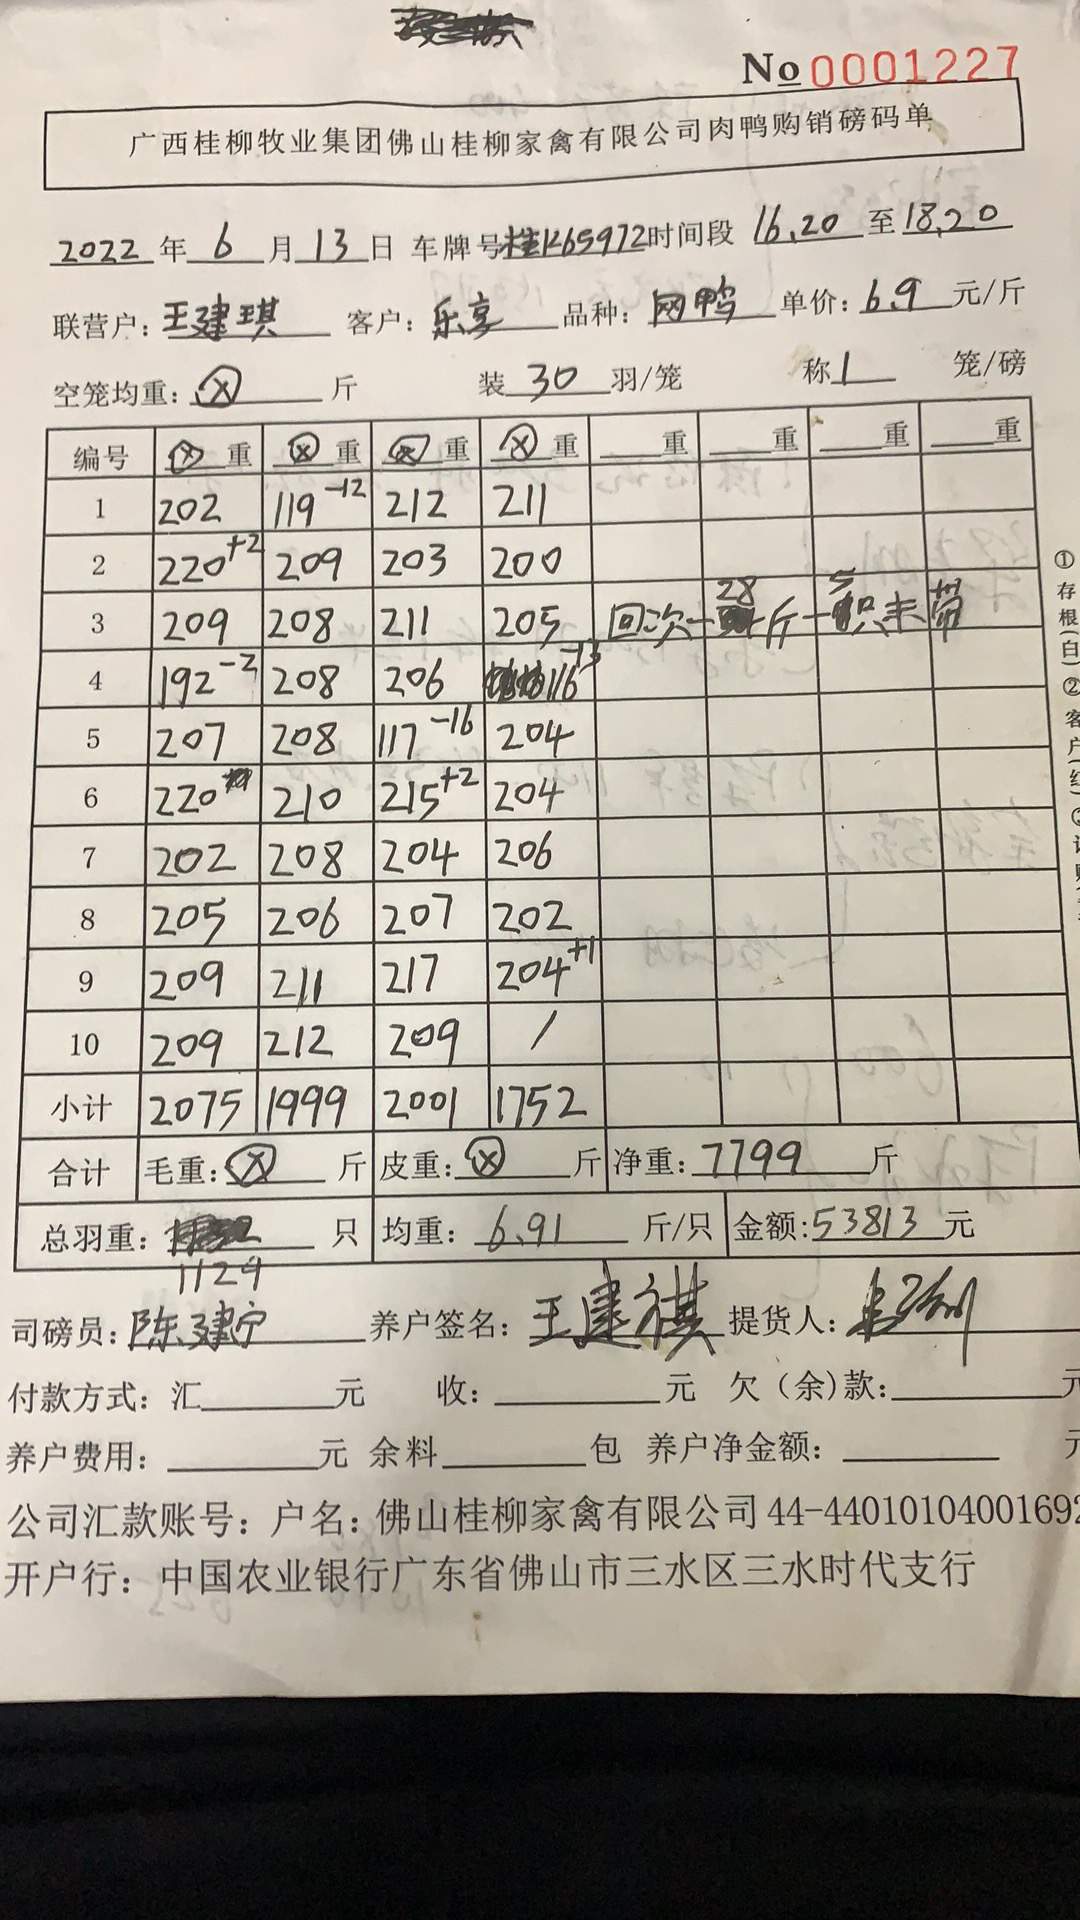 No 0001227
广西桂柳牧业集团佛山桂柳家禽有限公司肉鸭购销磅码单
2022 年 6 月 13 日 车牌号桂K65972时间段 16.20 至 18.20
联营户: 王建琪 客户: 乐享 品种: 网鸭 单价: 6.9 元/斤
空笼均重: ⓧ 斤 装 30 羽/笼 称 1 笼/磅
编号 ⓧ 重 ⓧ 重 ⓧ 重 ⓧ 重 重 重 重 重
1 202 119 -12 212 211
2 220 +2 209 203 200
3 209 208 211 205 回次-28斤-5只未带
4 192 -2 208 206 116 -13
5 207 208 117 -16 204
6 220 210 215 +2 204
7 202 208 204 206
8 205 206 207 202
9 209 211 217 204 +1
10 209 212 209 /
小计 2075 1999 2001 1752
合计 毛重: ⓧ 斤 皮重: ⓧ 斤 净重: 7799 斤
总羽重: 1129 只 均重: 6.91 斤/只 金额: 53813 元
司磅员: 陈建宁 养户签名: 王建祺 提货人:
付款方式: 汇 元 收: 元 欠(余)款: 元
养户费用: 元 余料 包 养户净金额: 元
公司汇款账号: 户名: 佛山桂柳家禽有限公司 44-44010104001692
开户行: 中国农业银行广东省佛山市三水区三水时代支行
①存根(白)②客户(红)